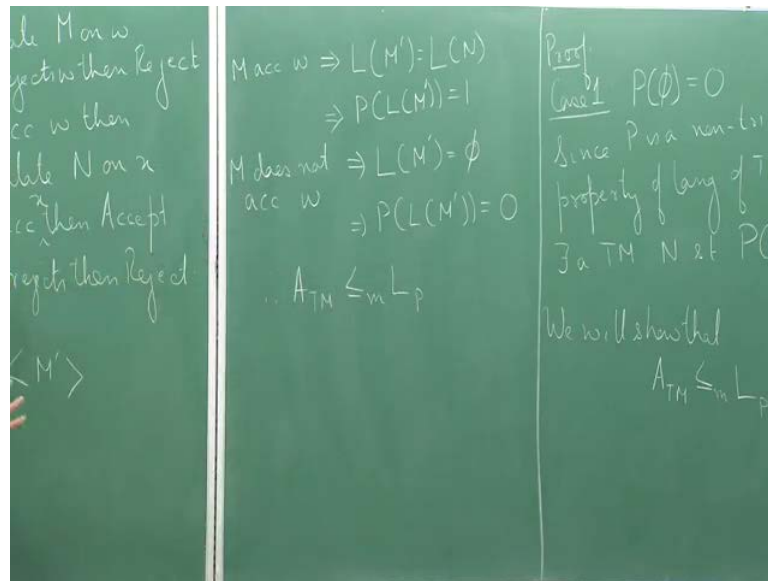 M on w
then Reject
acc w then
N on x
x
then Accept
then Reject
< M' >
M acc w ⇒ L(M') = L(N)
⇒ P(L(M')) = 1
M does not ⇒ L(M') = ϕ
acc w
⇒ P(L(M')) = 0
∴ A_TM ≤_m L_P
Proof:
Case 1 P(ϕ) = 0
Since P is a non-tri
property of lang of T
∃ a TM N st P(
We will show that
A_TM ≤_m L_P